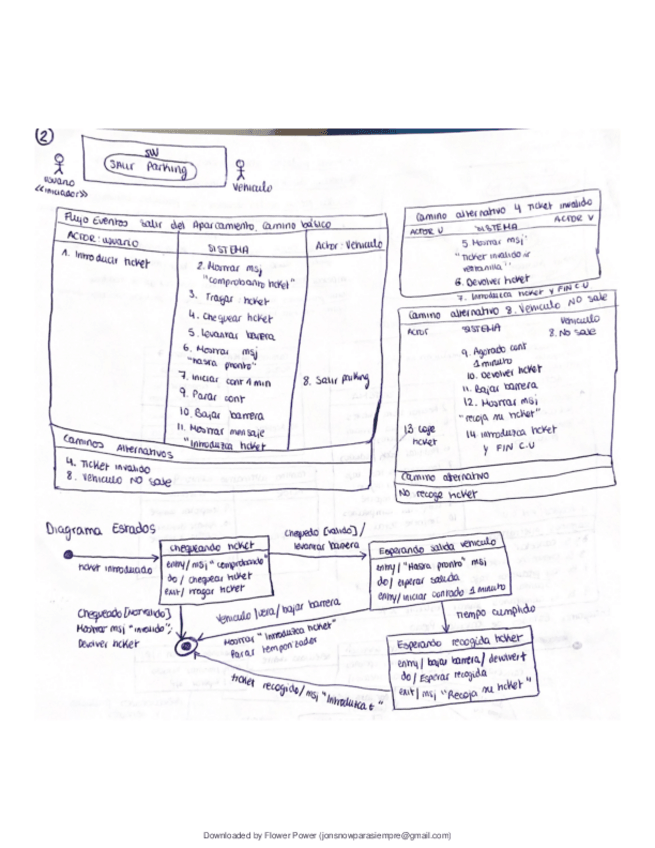 2
SW
Salir Parking
usuario
<<iniciador>>
Vehiculo
Flujo Eventos Salir del Aparcamiento. Camino básico
ACTOR: usuario
SISTEMA
Actor: Vehiculo
1. Introducir ticket
2. Mostrar msj
"comprobando ticket"
3. Tragar ticket
4. Chequear ticket
5. Levantar barrera
6. Mostrar msj
"hasta pronto"
7. Iniciar cont 1 min
8. Salir parking
9. Parar cont
10. Bajar barrera
11. Mostrar mensaje
"Introduzca ticket
Caminos Alternativos
4. Ticket invalido
8. Vehiculo NO sale
Camino alternativo 4 Ticket invalido
ACTOR U
SISTEMA
ACTOR V
5 Mostrar msj
"Ticket invalido ir
ventanilla".
6. Devolver ticket
7. Introduzca ticket y FIN C.U
Camino alternativo 8. Vehiculo NO sale
ACTOR
SISTEMA
Vehiculo
8. No sale
9. Agotado cont
1 minuto
10. Devolver ticket
11. Bajar barrera
12. Mostrar msj
"recoja su ticket"
13 coje
ticket
14 introduzca ticket
y FIN C.U
Camino alternativo
No recoge ticket
Diagrama Estados
ticket introducido
chequeando ticket
entry/ msj "comprobando"
do/ chequear ticket
exit/ tragar ticket
chequedo [valido]/
levantar barrera
Esperando salida vehiculo
entry/ "Hasta pronto" msj
do/ esperar salida
entry/ iniciar contado 1 minuto
Chequeado [No valido]
Mostrar msj "invalido";
Devolver ticket
Vehiculo fuera/ bajar barrera
Mostrar "Introduzca ticket"
Parar temporizador
Tiempo cumplido
Esperando recogida ticket
entry/ bajar barrera/ devolver t
do/ Esperar recogida
exit/ msj "Recoja su ticket"
ticket recogido/ msj "Introduzca t"
Downloaded by Flower Power (jonsnowparasiempre@gmail.com)